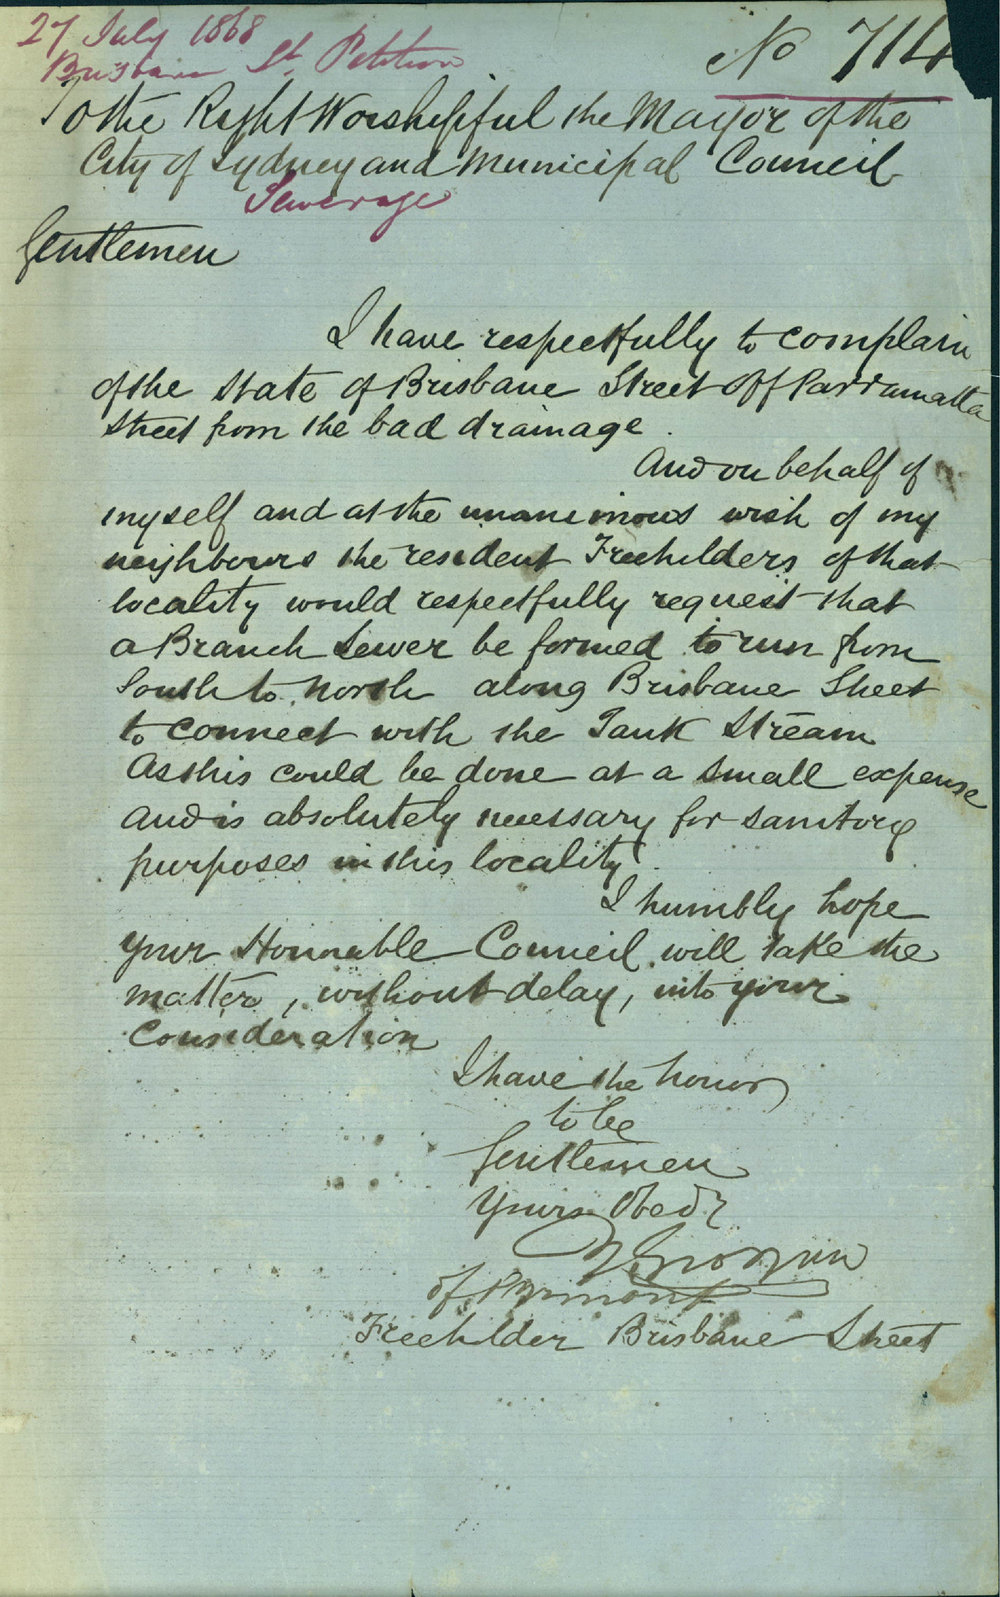 27 July 1868
Brisbane St. Petition
No 714
To the Right Worshipful the Mayor of the
City of Sydney and Municipal Council
Sewerage
Gentlemen
I have respectfully to complain
of the state of Brisbane Street off Parramatta
Street from the bad drainage.
And on behalf of
myself and at the unanimous wish of my
neighbours the resident Freeholders of that
locality would respectfully request that
a Branch Sewer be formed to run from
South to North along Brisbane Street
to connect with the Tank Stream
As this could be done at a small expense
and is absolutely necessary for sanitory
purposes in this locality.
I humbly hope
your Honorable Council will take the
matter, without delay, into your
consideration
I have the honor
to be
Gentlemen
Yours Obedt
of Pyrmont
Freeholder Brisbane Street